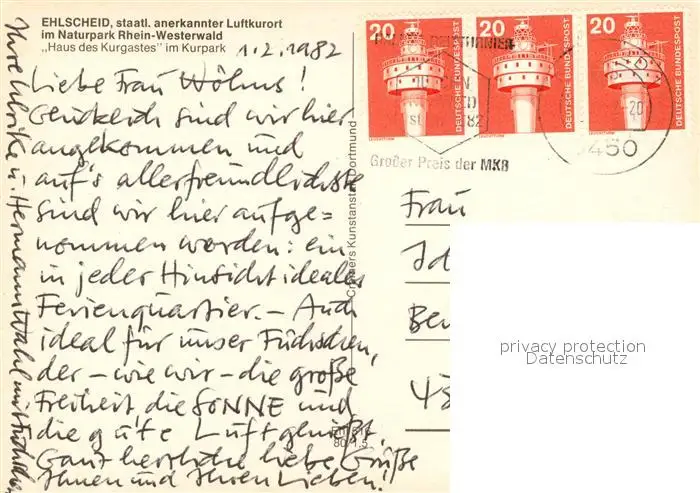 EHLSCHEID, staatl. anerkannter Luftkurort
im Naturpark Rhein-Westerwald
„Haus des Kurgastes" im Kurpark
1.2.1982
Liebe Frau Wöhns!
Glücklich sind wir hier
angekommen und
auf's allerfreundlichste
sind wir hier aufge=
nommen worden: ein
in jeder Hinsicht ideales
Ferienquartier. – Auch
ideal für unser Füchschen,
der – wie wir – die große
Freiheit die SONNE und
die gute Luft genießt.
Ganz herzliche liebe Grüße
Ihnen und Ihren Lieben!
Ihre Ulrike u. Hermann Wahl mit
Kunstanstalt Dortmund
20
20
20
DEUTSCHE BUNDESPOST
DEUTSCHE BUNDESPOST
DEUTSCHE BUNDESPOST
LEUCHTTURM
LEUCHTTURM
LEUCHTTURM
Großer Preis der MKB
450
Frau
privacy protection
Datenschutz